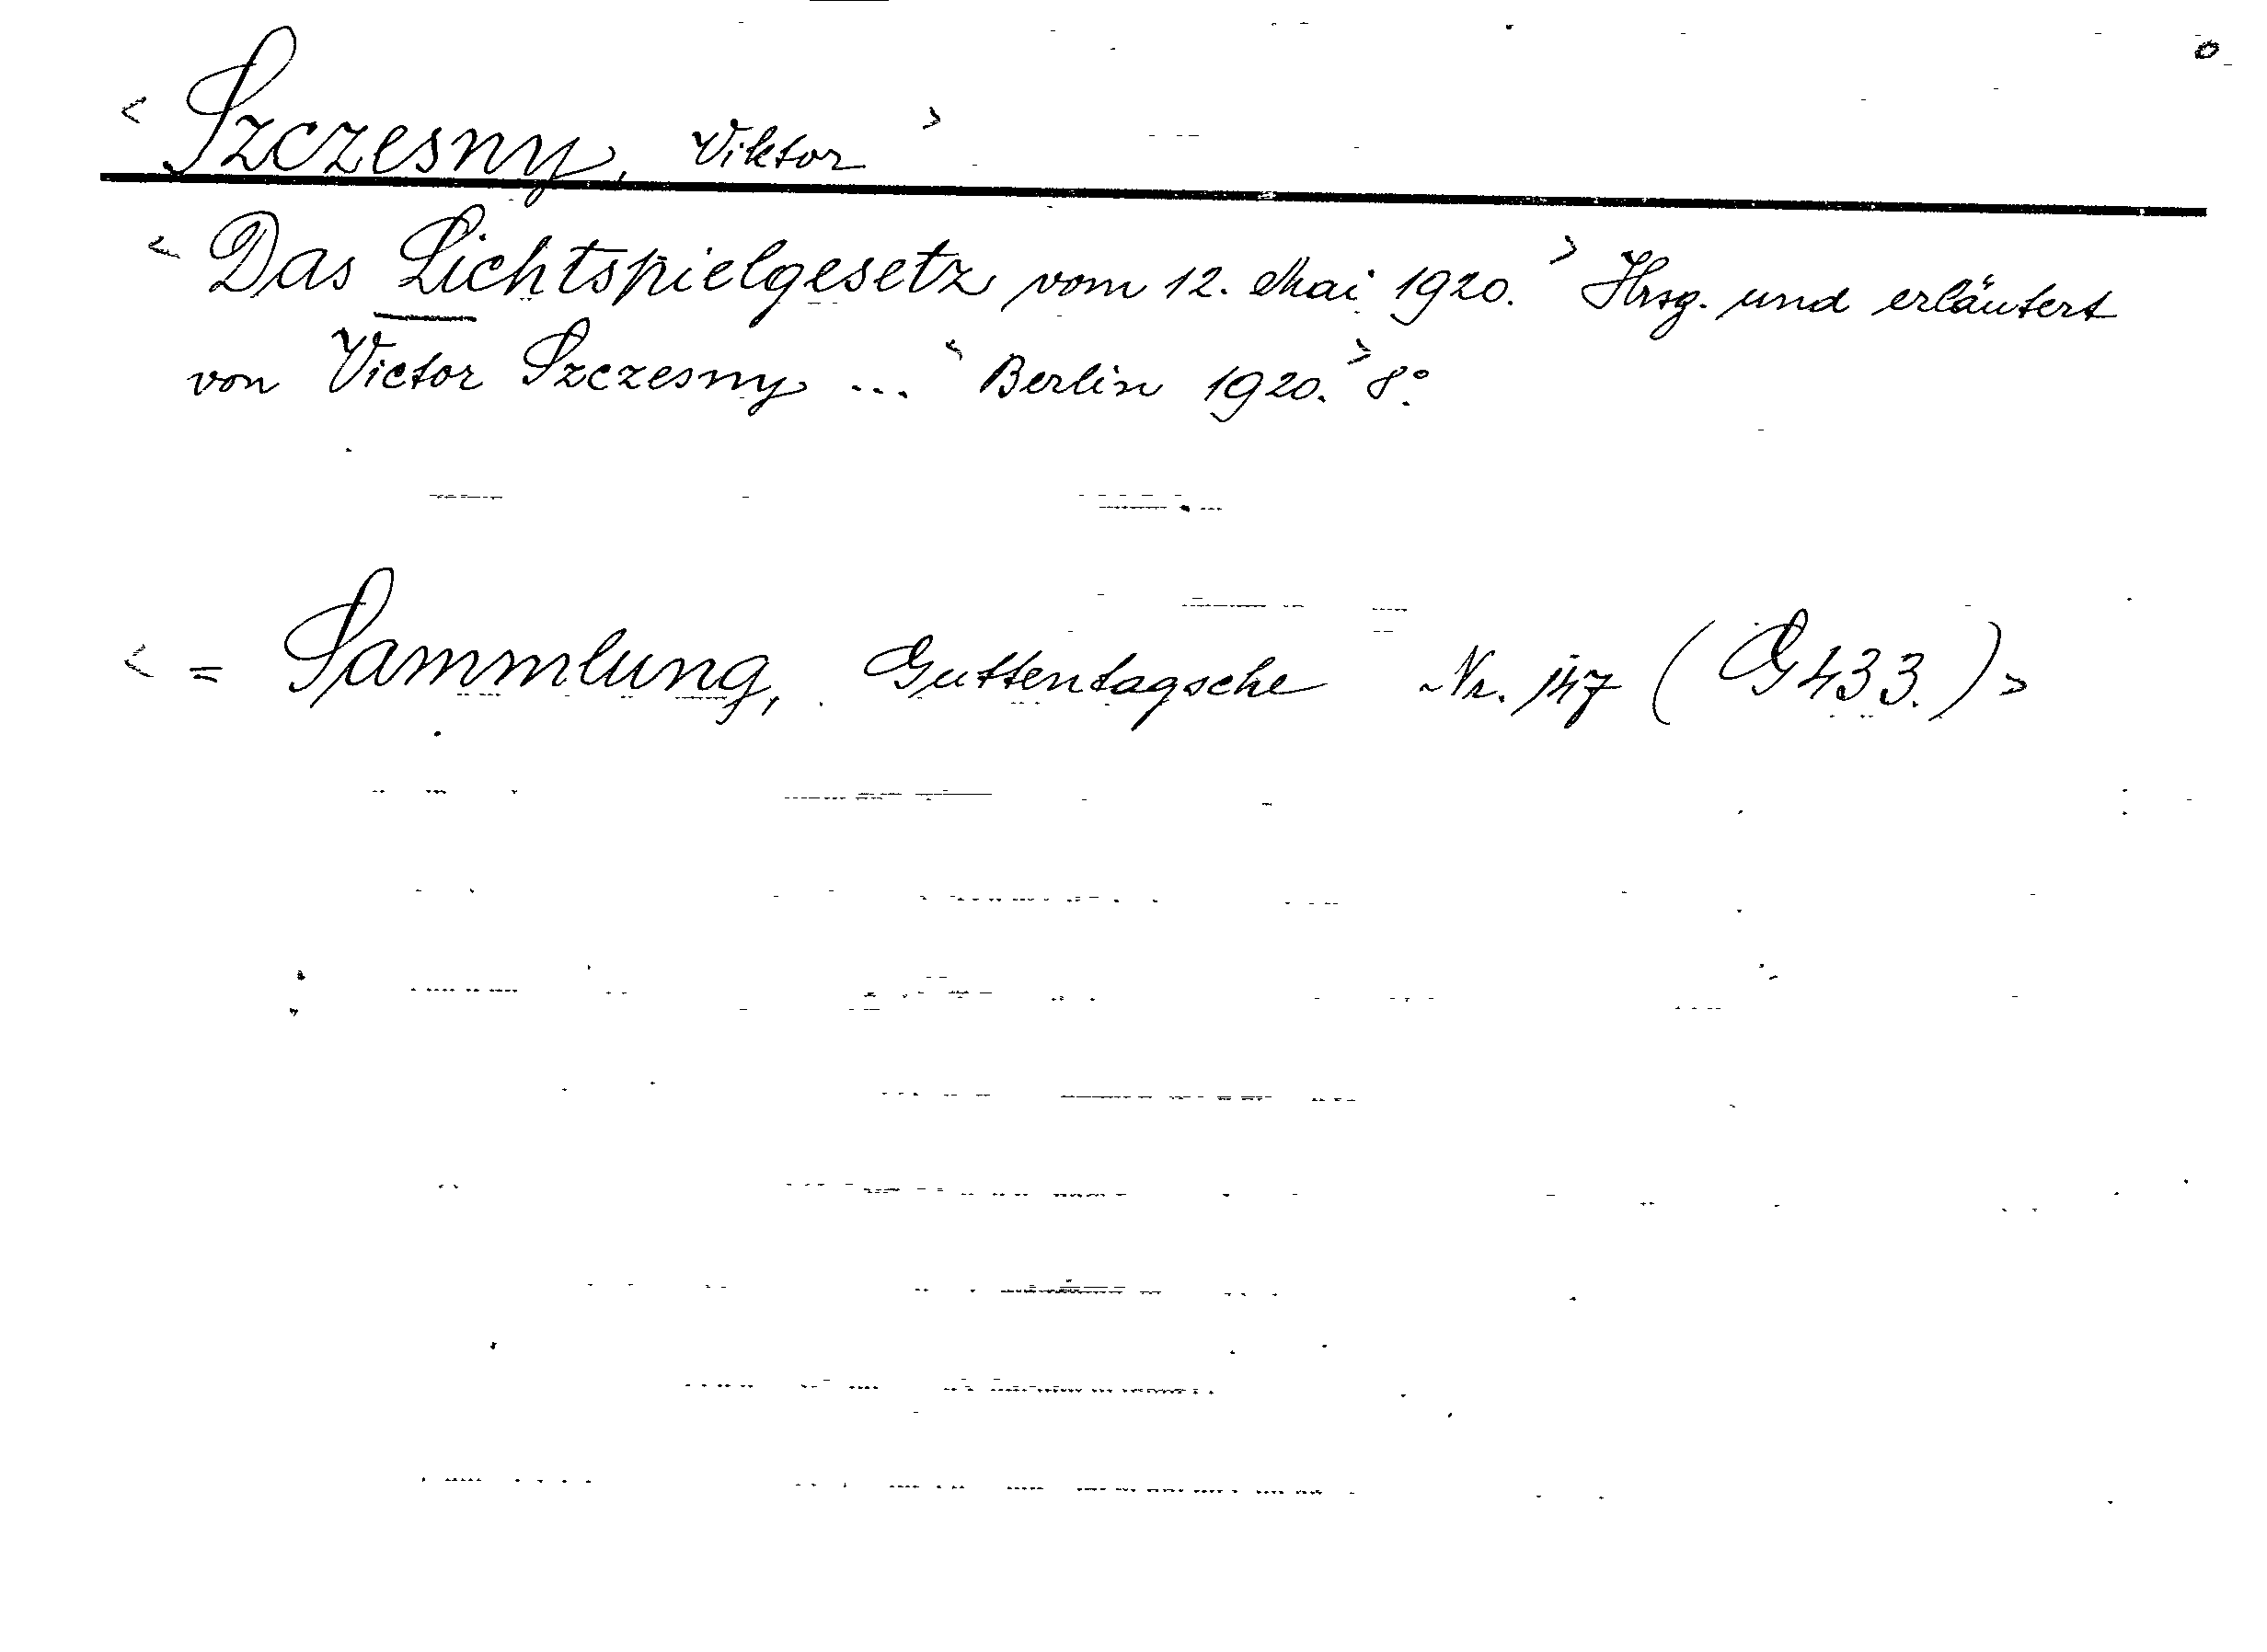 < Szczesny, Viktor >
< Das Lichtspielgesetz vom 12. Mai 1920. > Hrsg. und erläutert
von Victor Szczesny ... < Berlin 1920. > 8°.
< = Sammlung, Guttentagsche Nr. 147 ( G 433. ) >